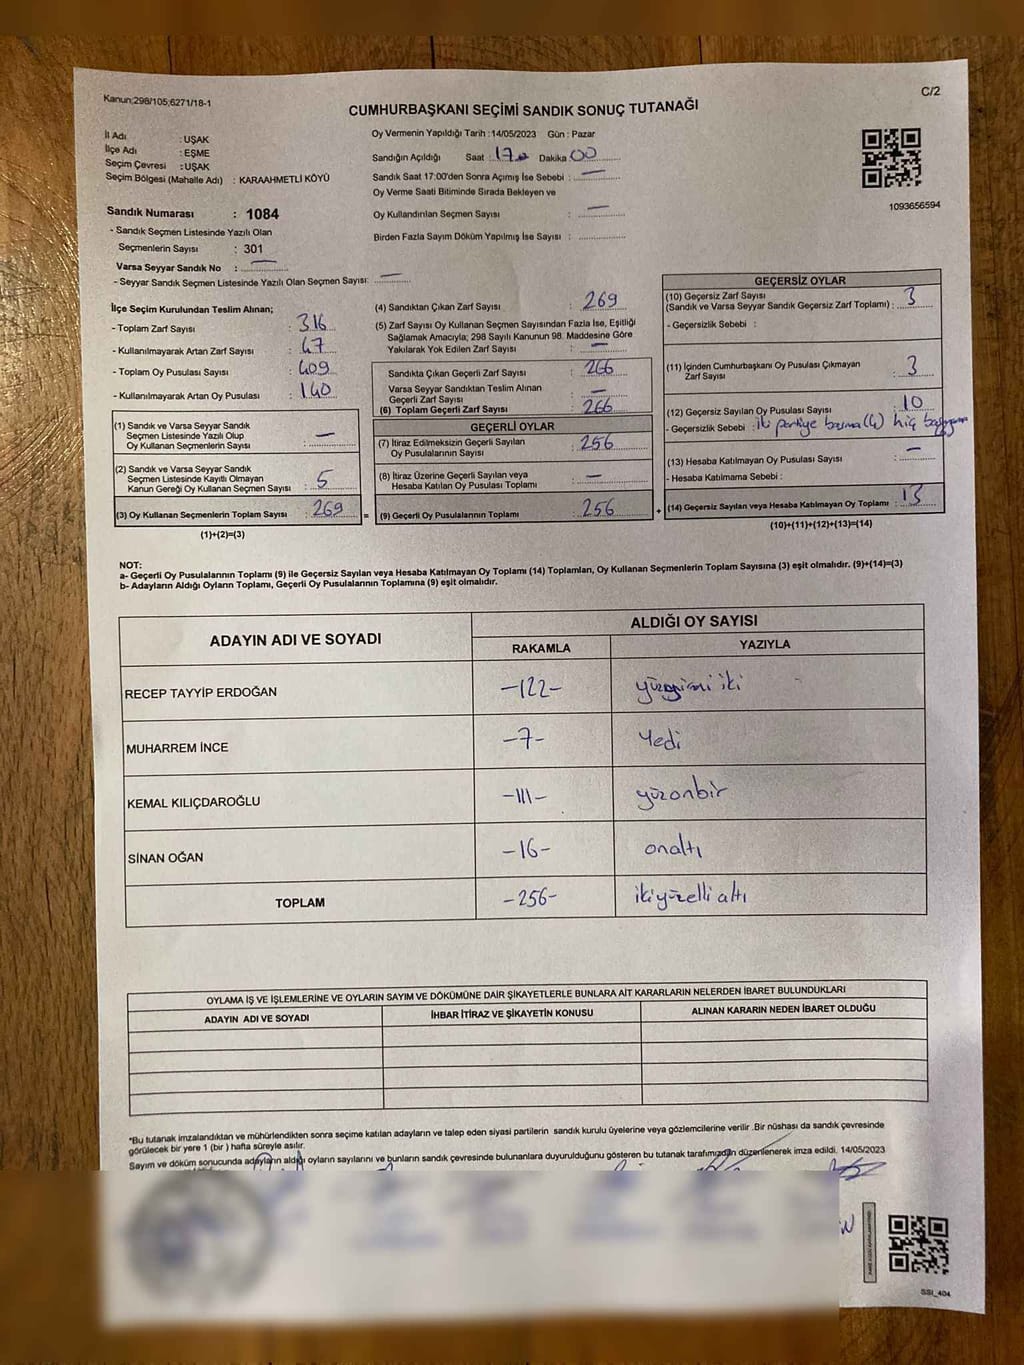 Kanun;298/105;6271/18-1
C/2
CUMHURBAŞKANI SEÇİMİ SANDIK SONUÇ TUTANAĞI
İl Adı : UŞAK
İlçe Adı : EŞME
Seçim Çevresi : UŞAK
Seçim Bölgesi (Mahalle Adı) : KARAAHMETLİ KÖYÜ
Sandık Numarası : 1084
- Sandık Seçmen Listesinde Yazılı Olan
Seçmenlerin Sayısı : 301
Varsa Seyyar Sandık No : —
- Seyyar Sandık Seçmen Listesinde Yazılı Olan Seçmen Sayısı: —
Oy Vermenin Yapıldığı Tarih :14/05/2023 Gün : Pazar
Sandığın Açıldığı Saat : 17 Dakika 00
Sandık Saat 17:00'den Sonra Açımış İse Sebebi : —
Oy Verme Saati Bitiminde Sırada Bekleyen ve
Oy Kullandırılan Seçmen Sayısı : —
Birden Fazla Sayım Döküm Yapılmış İse Sayısı :
1093656594
İlçe Seçim Kurulundan Teslim Alınan;
- Toplam Zarf Sayısı : 316
- Kullanılmayarak Artan Zarf Sayısı : 47
- Toplam Oy Pusulası Sayısı : 409
- Kullanılmayarak Artan Oy Pusulası : 140
(1) Sandık ve Varsa Seyyar Sandık
Seçmen Listesinde Yazılı Olup
Oy Kullanan Seçmenlerin Sayısı : —
(2) Sandık ve Varsa Seyyar Sandık
Seçmen Listesinde Kayıtlı Olmayan
Kanun Gereği Oy Kullanan Seçmen Sayısı : 5
(3) Oy Kullanan Seçmenlerin Toplam Sayısı : 269 =
(1)+(2)=(3)
(4) Sandıktan Çıkan Zarf Sayısı : 269
(5) Zarf Sayısı Oy Kullanan Seçmen Sayısından Fazla İse, Eşitliği
Sağlamak Amacıyla; 298 Sayılı Kanunun 98. Maddesine Göre
Yakılarak Yok Edilen Zarf Sayısı : —
Sandıkta Çıkan Geçerli Zarf Sayısı : 266
Varsa Seyyar Sandıktan Teslim Alınan
Geçerli Zarf Sayısı : —
(6) Toplam Geçerli Zarf Sayısı : 266
GEÇERLİ OYLAR
(7) İtiraz Edilmeksizin Geçerli Sayılan
Oy Pusulalarının Sayısı : 256
(8) İtiraz Üzerine Geçerli Sayılan veya
Hesaba Katılan Oy Pusulası Toplamı : —
(9) Geçerli Oy Pusulalarının Toplamı : 256 +
GEÇERSİZ OYLAR
(10) Geçersiz Zarf Sayısı
(Sandık ve Varsa Seyyar Sandık Geçersiz Zarf Toplamı) : 3
- Geçersizlik Sebebi :
(11) İçinden Cumhurbaşkanı Oy Pusulası Çıkmayan
Zarf Sayısı : 3
(12) Geçersiz Sayılan Oy Pusulası Sayısı : 10
- Geçersizlik Sebebi : iki partiye basma(4) hiç
(13) Hesaba Katılmayan Oy Pusulası Sayısı : —
- Hesaba Katılmama Sebebi :
(14) Geçersiz Sayılan veya Hesaba Katılmayan Oy Toplamı : 13
(10)+(11)+(12)+(13)=(14)
NOT:
a- Geçerli Oy Pusulalarının Toplamı (9) ile Geçersiz Sayılan veya Hesaba Katılmayan Oy Toplamı (14) Toplamları, Oy Kullanan Seçmenlerin Toplam Sayısına (3) eşit olmalıdır. (9)+(14)=(3)
b- Adayların Aldığı Oyların Toplamı, Geçerli Oy Pusulalarının Toplamına (9) eşit olmalıdır.
ADAYIN ADI VE SOYADI
ALDIĞI OY SAYISI
RAKAMLA YAZIYLA
RECEP TAYYİP ERDOĞAN -122- yüzyirmi iki
MUHARREM İNCE -7- Yedi
KEMAL KILIÇDAROĞLU -111- yüzonbir
SİNAN OĞAN -16- onaltı
TOPLAM -256- ikiyüzelli altı
OYLAMA İŞ VE İŞLEMLERİNE VE OYLARIN SAYIM VE DÖKÜMÜNE DAİR ŞİKAYETLERLE BUNLARA AİT KARARLARIN NELERDEN İBARET BULUNDUKLARI
ADAYIN ADI VE SOYADI İHBAR İTİRAZ VE ŞİKAYETİN KONUSU ALINAN KARARIN NEDEN İBARET OLDUĞU
*Bu tutanak imzalandıktan ve mühürlendikten sonra seçime katılan adayların ve talep eden siyasi partilerin sandık kurulu üyelerine veya gözlemcilerine verilir .Bir nüshası da sandık çevresinde
görülecek bir yere 1 (bir ) hafta süreyle asılır.
Sayım ve döküm sonucunda adayların aldığı oyların sayılarını ve bunların sandık çevresinde bulunanlara duyurulduğunu gösteren bu tutanak tarafımızdan düzenlenerek imza edildi. 14/05/2023
SSİ_404